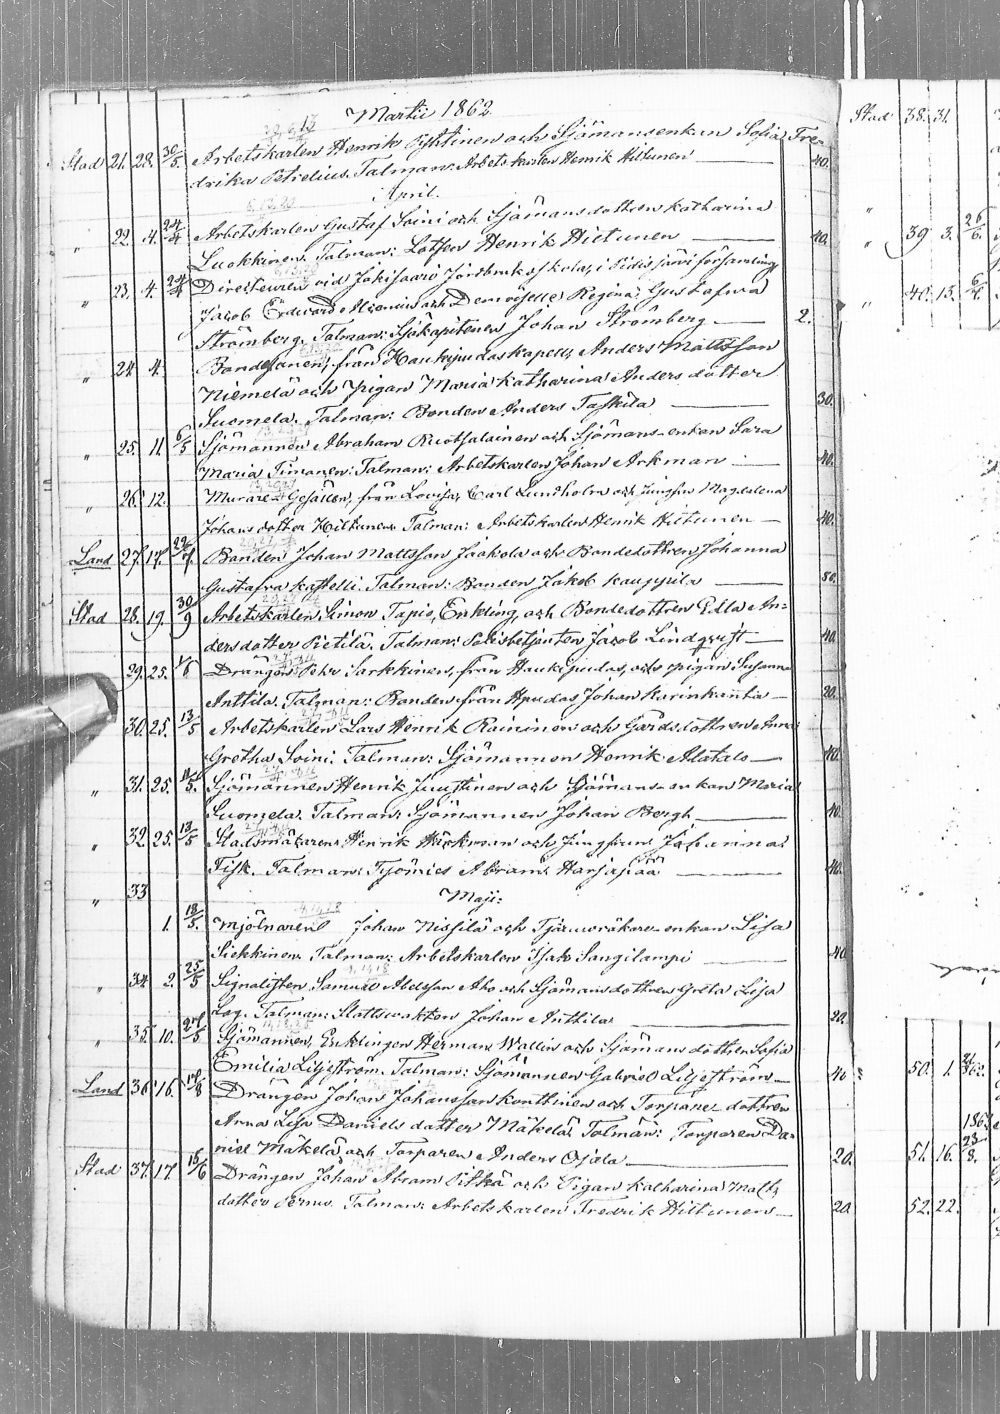 Martii 1862
Stad 21. 28. 30/5. Arbetskarlen Henrik Pyhtinen och Sjömansenkan Sofia Fre-
drika Petrelius. Talman: Arbetskarlen Henrik Hiltunen 40.
April.
" 22. 4. 24/4 Arbetskarlen Gustaf Soini och Sjömansdottren Katharina
Luokkinen. Talman: Lotsen Henrik Hiltunen 40.
" 23. 4. 24/4 Directeuren vid Jokisaari Jordbruksskola, i Pidisjärvi församling,
Jacob Edward och Demoiselle Regina Gustafva
Strömberg. Talman: Sjökapitenen Johan Strömberg 2.
" 24. 4. Bondesonen, från Haukipudas kapell, Anders Mattsson
Niemelä och Pigan Maria Katharina Andersdotter
Suomela. Talman: Bonden Anders Taskila 30.
" 25. 11. 6/5 Sjömannen Abraham Ruotsalainen och Sjömans-enkan Sara
Maria Timonen. Talman: Arbetskarlen Johan Arkman 40.
" 26. 12. Murare-Gesällen, från Lovisa, Carl Lundholm och Jungfru Magdalena
Johansdotter Hiltunen. Talman: Arbetskarlen Henrik Hiltunen 40.
Land 27. 17. Bonden Johan Mattsson Jaakola och Bondedottren Johanna
Gustafva Kastelli. Talman: Bonden Jakob Kauppila 80.
Stad 28. 19. 30/9 Arbetskarlen Simon Tapio, Enkling, och Bondedottren Edla An-
dersdotter Pietilä. Talman: Polisbetjenten Jacob Lindqvist 40.
29. 25. Drängen Petr Sarkkinen, från Haukipudas, och pigan Susanna
Anttila. Talman: Bonden från Hpudas Johan Karinkanta 20.
30. 25. 13/5 Arbetskarlen Lars Henrik Raininen och Gardsdottren Anna
Gretha Soini. Talman: Sjömannen Henrik Alatalo 40.
" 31. 25. Sjömannen Henrik Juustinen och Sjömans-enkan Maria
Suomela. Talman: Sjömannen Johan Bergh 40.
" 32. 25. 13/5 Stadsmäkaren Henrik Häkman och Jungfrun Johanna
Fisk. Talman: Tjömies Abram Harjapää 40.
" 33 Maji:
1. 18/5. Mjölnaren Johan Nissilä och Tjäruvräkare-enkan Lisa
Siekkinen. Talman: Arbetskarlen Isak Sangilampi 40
" 34. 2. 25/5 Signalisten Samuel Alexson Aho och Sjömansdottren Greta Lisa
Log. Talman: Slottsvakten Johan Anttila 20.
" 35. 10. Sjömannen, Enklingen Herman Wallin och Sjömansdottren Sofia
Emilia Liljeström. Talman: Sjömannen Gabriel Liljeström 40
Land 36. 16. Drängen Johan Johansson Konttinen och Torpare-dottren
Anna Lisa Danielsdotter Mäkelä. Talmän: Torparen Da-
niel Mäkelä och Torparen Anders Ojala 20.
Stad 37. 17. 15/6 Drängen Johan Abram Pitkä och Pigan Katharina Matts
dotter Pernu. Talman: Arbetskarlen Fredrik Hiltunen 20.
Stad 38. 31.
" 39. 3. 26/6.
" 40. 13.
50. 1.
1863
51. 16. 23/8.
52. 22.